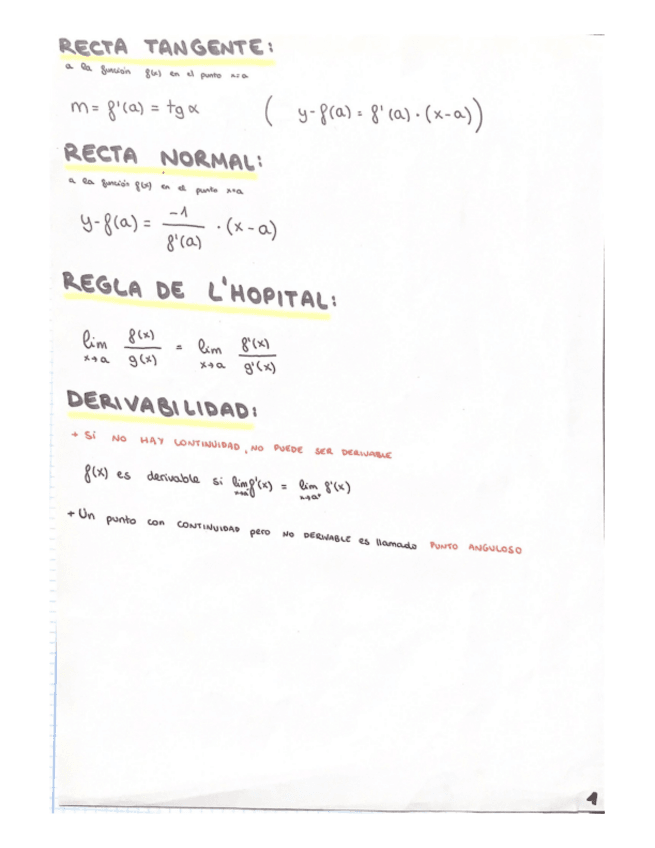 RECTA TANGENTE:
a la función f(x) en el punto x=a
m = f'(a) = tg α ( y-f(a) = f'(a) · (x-a))
RECTA NORMAL:
a la función f(x) en el punto x=a
y-f(a) = -1/f'(a) · (x-a)
REGLA DE L'HOPITAL:
lim x→a f(x)/g(x) = lim x→a f'(x)/g'(x)
DERIVABILIDAD:
+ SI NO HAY CONTINUIDAD, NO PUEDE SER DERIVABLE
f(x) es derivable si lim x→a⁻ f'(x) = lim x→a⁺ f'(x)
+ Un punto con CONTINUIDAD pero NO DERIVABLE es llamado PUNTO ANGULOSO
1